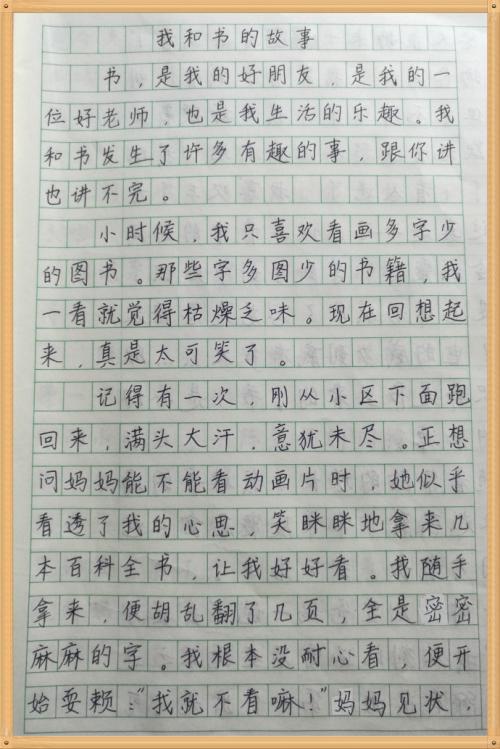 我和书的故事
书，是我的好朋友，是我的一
位好老师，也是我生活的乐趣。我
和书发生了许多有趣的事，跟你讲
也讲不完。
小时候，我只喜欢看画多字少
的图书。那些字多图少的书籍，我
一看就觉得枯燥乏味。现在回想起
来，真是太可笑了。
记得有一次，刚从小区下面跑
回来，满头大汗，意犹未尽。正想
问妈妈能不能看动画片时，她似乎
看透了我的心思，笑眯眯地拿来几
本百科全书，让我好好看。我随手
拿来，便胡乱翻了几页，全是密密
麻麻的字。我根本没耐心看，便开
始耍赖："我就不看嘛！"妈妈见状，